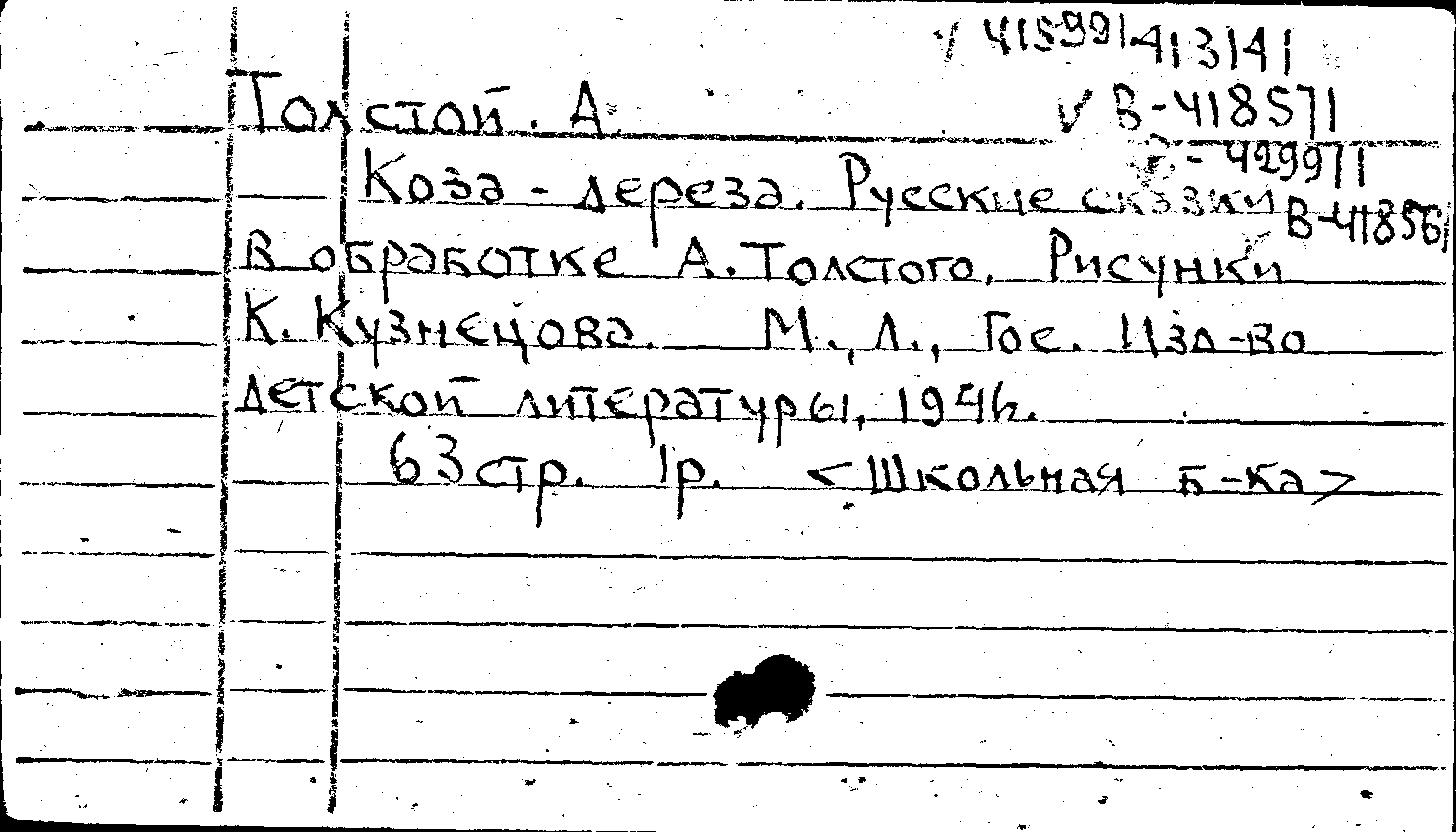 √ 415991 413141
Толстой. А.
√ В-418571
В-429971
Коза-дереза. Русские сказки
В-418561
в обработке А.Толстого. Рисунки
К. Кузнецова. М., Л., Гос. Изд-во
детской литературы, 1946.
63стр. 1р. <Школьная б-ка>